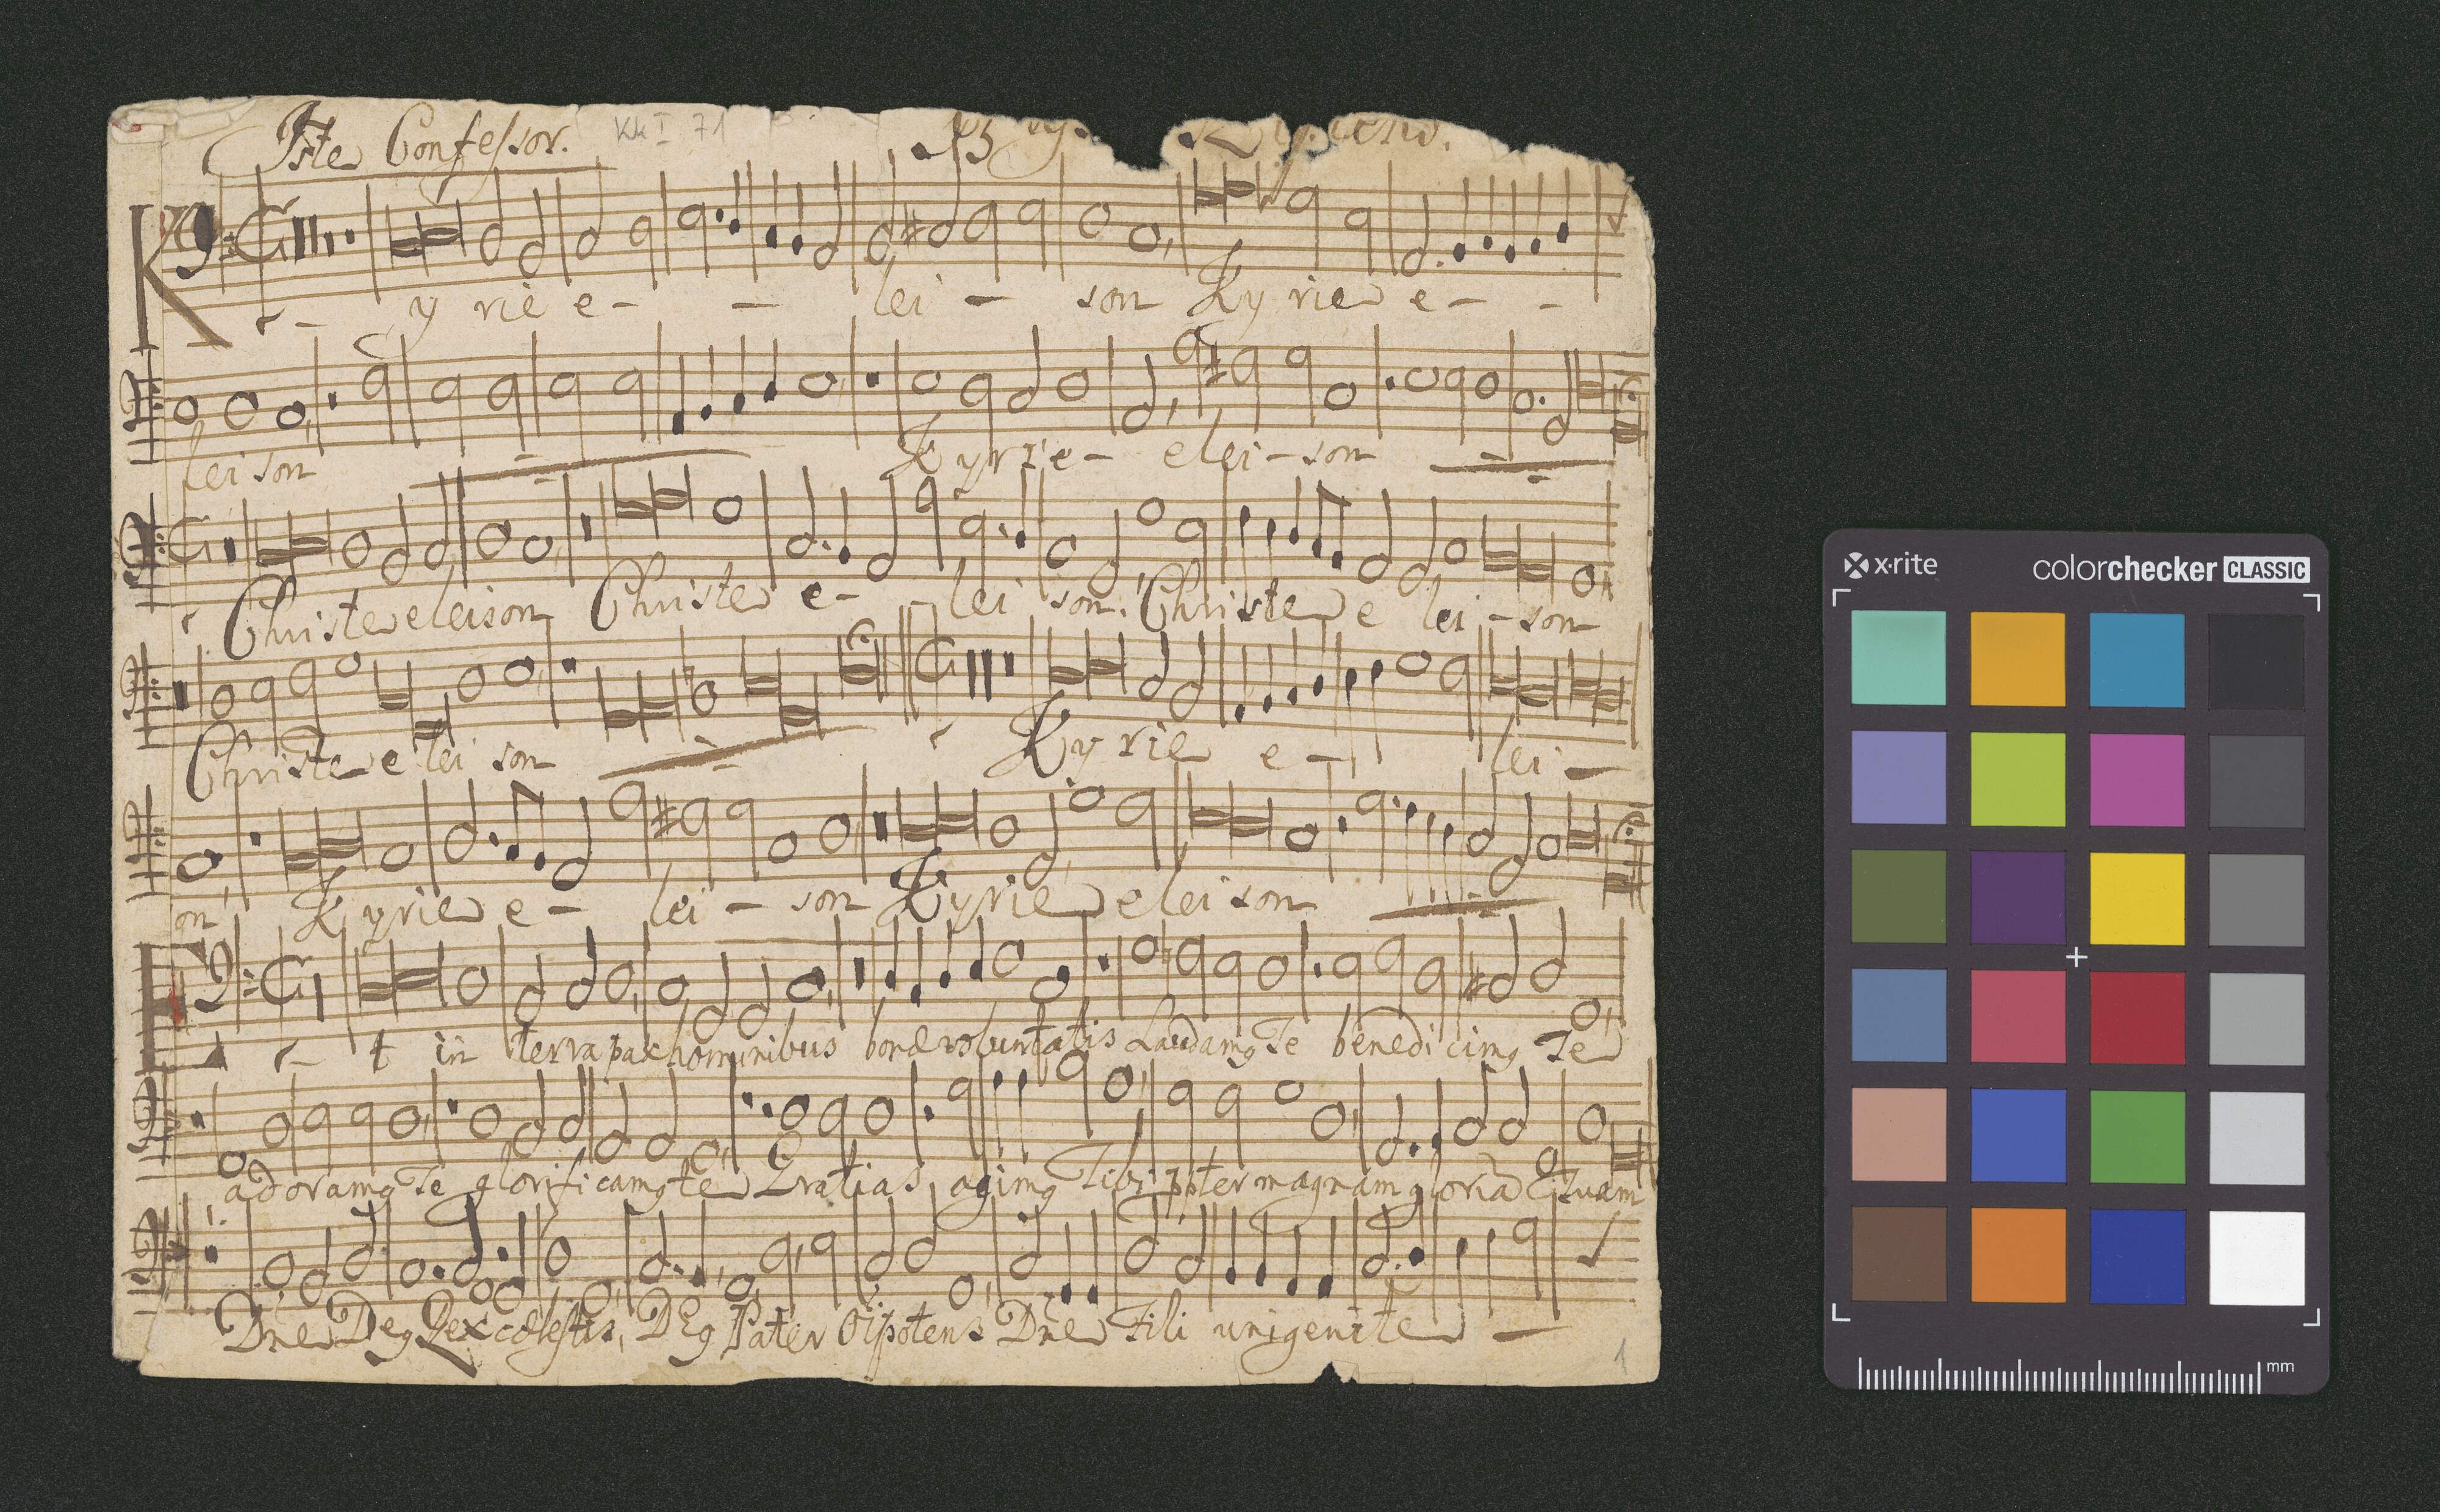 Iste Confessor. Kk I 71
Ky rie e- - lei - son Kyrie e- -
lei son Kyrie- elei-son
Christe eleison Christe e- lei son. Christe e lei-son
Christe e lei son Kyrie e- lei-
on Kyrie e- lei-son Kyrie eleison
Et in terra pax hominibus bonæ voluntatis Laudamꝗ Te benedicimꝗ Te
adoramꝗ Te glorificamꝗ te Gratias agimꝗ Tibi ppter magnam gloria Tuam
Dne Deꝗ Rex cœlestis, Deꝗ Pater Oipotens Dne Fili unigenite -
1
x·rite
colorchecker CLASSIC
mm